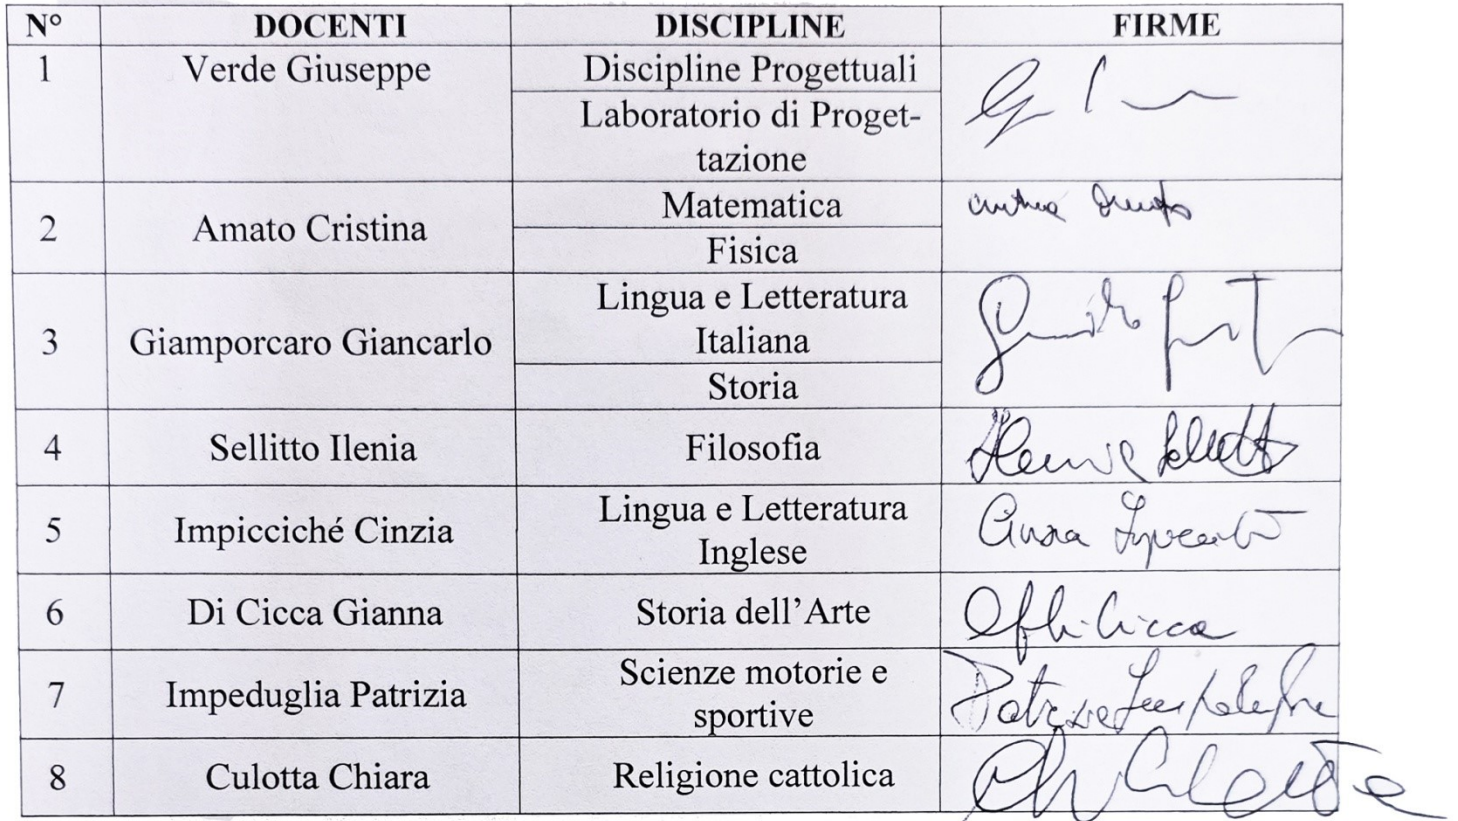 N° DOCENTI DISCIPLINE FIRME
1 Verde Giuseppe Discipline Progettuali
Laboratorio di Proget-
tazione
2 Amato Cristina Matematica
Fisica
3 Giamporcaro Giancarlo Lingua e Letteratura
Italiana
Storia
4 Sellitto Ilenia Filosofia
5 Impicciché Cinzia Lingua e Letteratura
Inglese
6 Di Cicca Gianna Storia dell’Arte
7 Impeduglia Patrizia Scienze motorie e
sportive
8 Culotta Chiara Religione cattolica